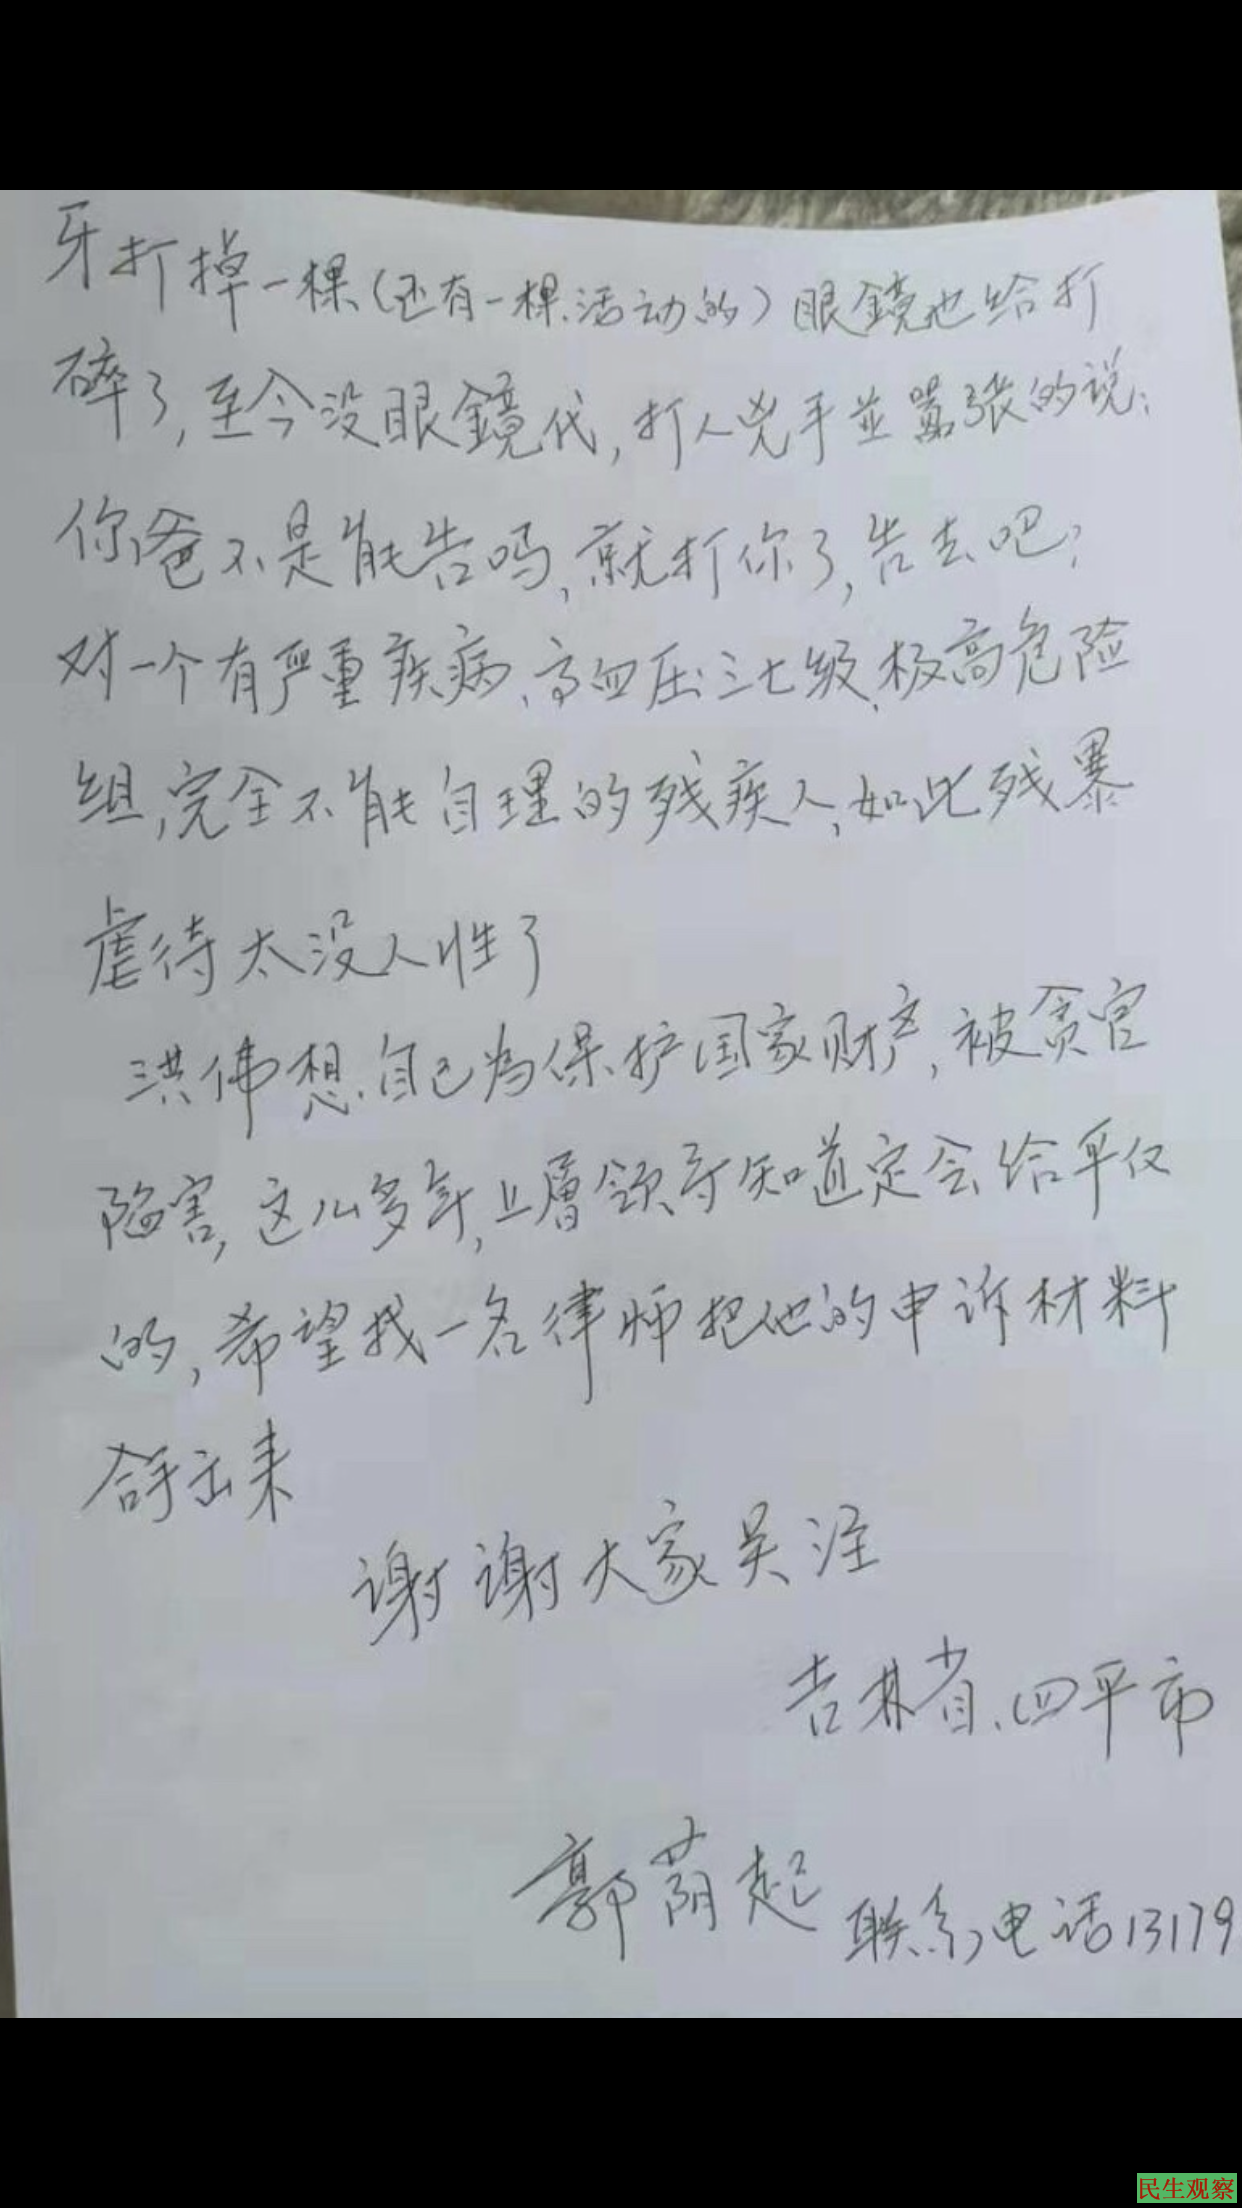 牙打掉一棵(还有一棵活动的)眼鏡也给打
碎了,至今没眼鏡代,打人兇手並嚣张的说:
你爸不是能告吗,就打你了,告去吧;
对一个有严重疾病,高血压三七级,极高危险
组,完全不能自理的残疾人,如此残暴
虐待太没人性了
洪伟想,自己为保护国家财产,被贪官
陷害,这么多年,上層领导知道定会给平反
的,希望找一名律师把他的申诉材料
拿出来
谢谢大家关注
吉林省、四平市
郭荫起 联系电话13179
民生观察